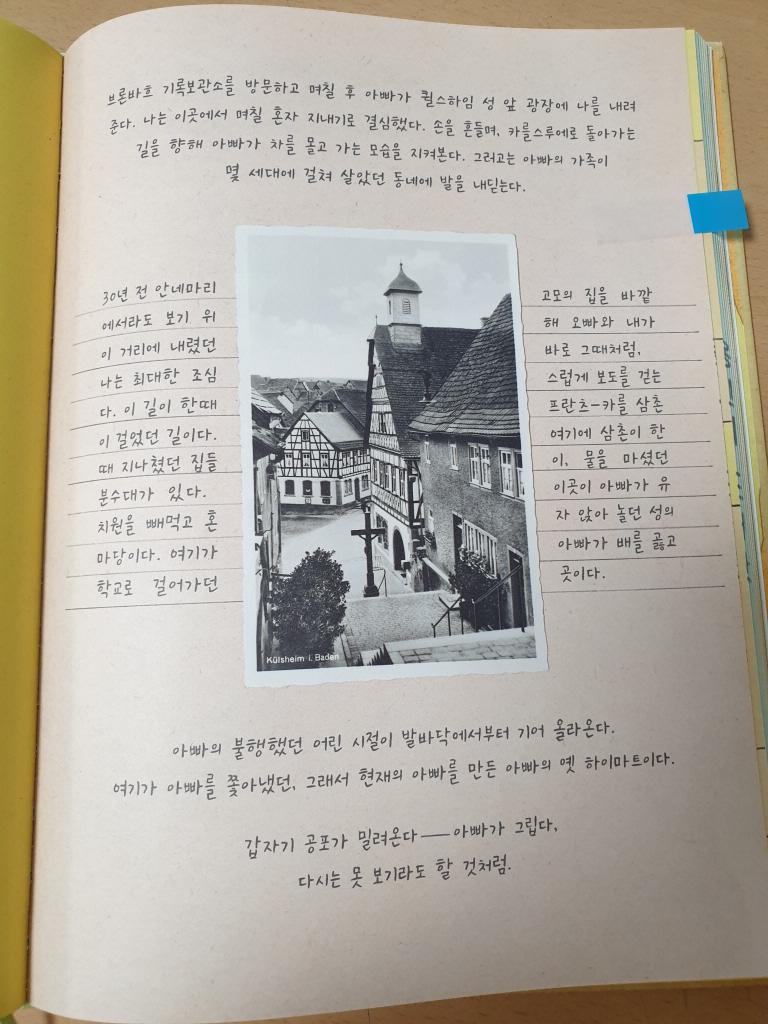 브론바흐 기록보관소를 방문하고 며칠 후 아빠가 퀼스하임 성 앞 광장에 나를 내려
준다. 나는 이곳에서 며칠 혼자 지내기로 결심했다. 손을 흔들며, 카를스루에로 돌아가는
길을 향해 아빠가 차를 몰고 가는 모습을 지켜본다. 그러고는 아빠의 가족이
몇 세대에 걸쳐 살았던 동네에 발을 내딛는다.
30년 전 안네마리 고모의 집을 바깥
에서라도 보기 위 해 오빠와 내가
이 거리에 내렸던 바로 그때처럼,
나는 최대한 조심 스럽게 보도를 걷는
다. 이 길이 한때 프란츠-카를 삼촌
이 걸었던 길이다. 여기에 삼촌이 한
때 지나쳤던 집들 이, 물을 마셨던
분수대가 있다. 이곳이 아빠가 유
치원을 빼먹고 혼 자 앉아 놀던 성의
마당이다. 여기가 아빠가 배를 곯고
학교로 걸어가던 곳이다.
Külsheim i. Baden
아빠의 불행했던 어린 시절이 발바닥에서부터 기어 올라온다.
여기가 아빠를 쫓아냈던, 그래서 현재의 아빠를 만든 아빠의 옛 하이마트이다.
갑자기 공포가 밀려온다 — 아빠가 그립다,
다시는 못 보기라도 할 것처럼.